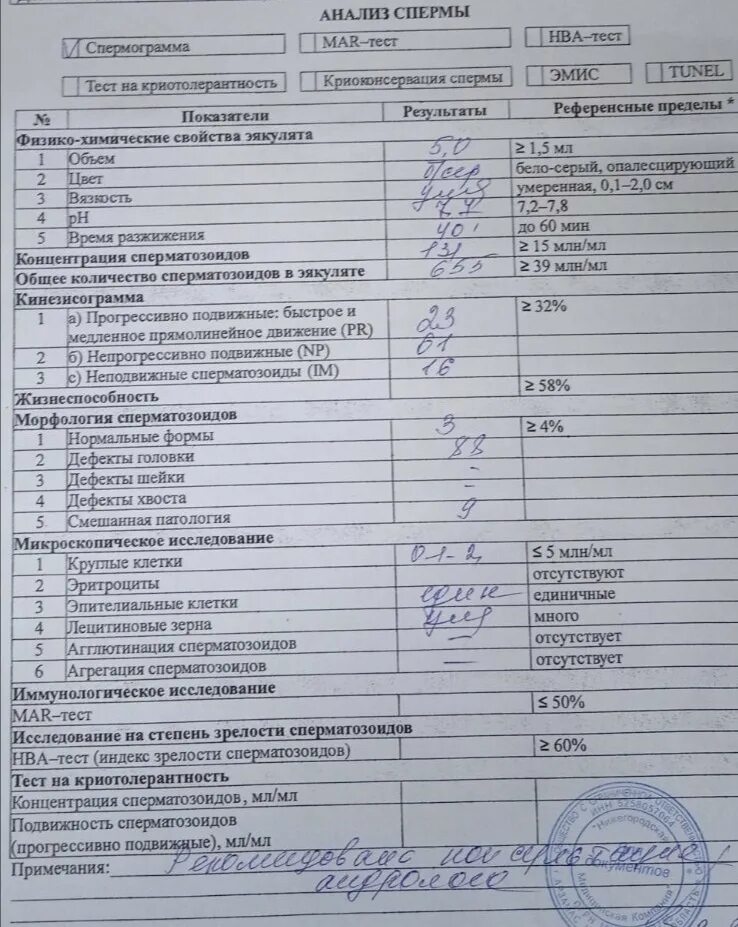 АНАЛИЗ СПЕРМЫ
Спермограмма MAR–тест HBA–тест
Тест на криотолерантность Криоконсервация спермы ЭМИС TUNEL
№ Показатели Результаты Референсные пределы *
Физико-химические свойства эякулята
1 Объем 5,0 ≥ 1,5 мл
2 Цвет б/сер бело-серый, опалесцирующий
3 Вязкость умер умеренная, 0,1–2,0 см
4 pH 7,7 7,2–7,8
5 Время разжижения 40' до 60 мин
Концентрация сперматозоидов 131 ≥ 15 млн/мл
Общее количество сперматозоидов в эякуляте 655 ≥ 39 млн/мл
Кинезисограмма
1 а) Прогрессивно подвижные: быстрое и
медленное прямолинейное движение (PR) 23 ≥ 32%
2 б) Непрогрессивно подвижные (NP) 61
3 с) Неподвижные сперматозоиды (IM) 16
Жизнеспособность ≥ 58%
Морфология сперматозоидов
1 Нормальные формы 3 ≥ 4%
2 Дефекты головки 88
3 Дефекты шейки –
4 Дефекты хвоста –
5 Смешанная патология 9
Микроскопическое исследование
1 Круглые клетки 0-1-2 ≤ 5 млн/мл
2 Эритроциты отсутствуют
3 Эпителиальные клетки един единичные
4 Лецитиновые зерна умер много
5 Агглютинация сперматозоидов — отсутствует
6 Агрегация сперматозоидов — отсутствует
Иммунологическое исследование
MAR–тест ≤ 50%
Исследование на степень зрелости сперматозоидов
HBA–тест (индекс зрелости сперматозоидов) ≥ 60%
Тест на криотолерантность
Концентрация сперматозоидов, мл/мл
Подвижность сперматозоидов
(прогрессивно подвижные), мл/мл
Примечания: Рекомендована консультация
андролога
ОБЩЕСТВО С ОГРАНИЧЕННОЙ ОТВЕТСТВЕННОСТЬЮ
ИНН 5258057064
"Нижегородская
Для документов
Медицинская Компания"